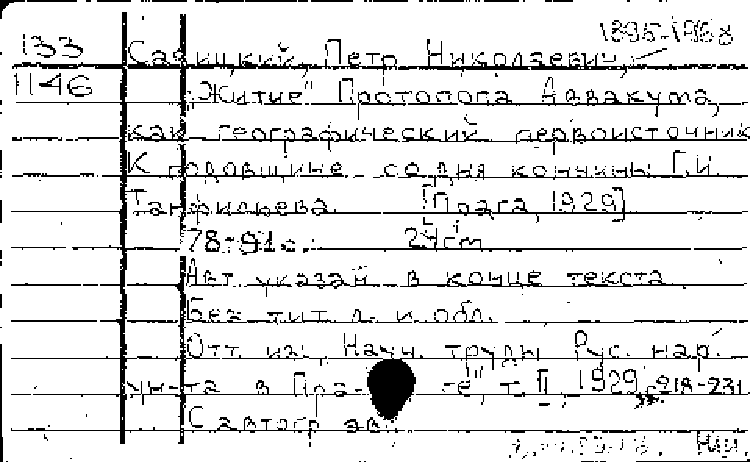 1895-1968
133 Савицкий, Петр Николаевич,
1146 „Житие" Протопопа Аввакума,
как географический первоисточник
К годовщине со дня кончины Г.И.
Танфильева. [Прага, 1929]
78-91 с. 24 cm.
Авт. указан в конце текста
Без тит. л. и обл.
Отт. из „Науч. труды Рус. нар.
ун-та в Пра-ге", т. II, 1929, 218-231
С автогр. ав